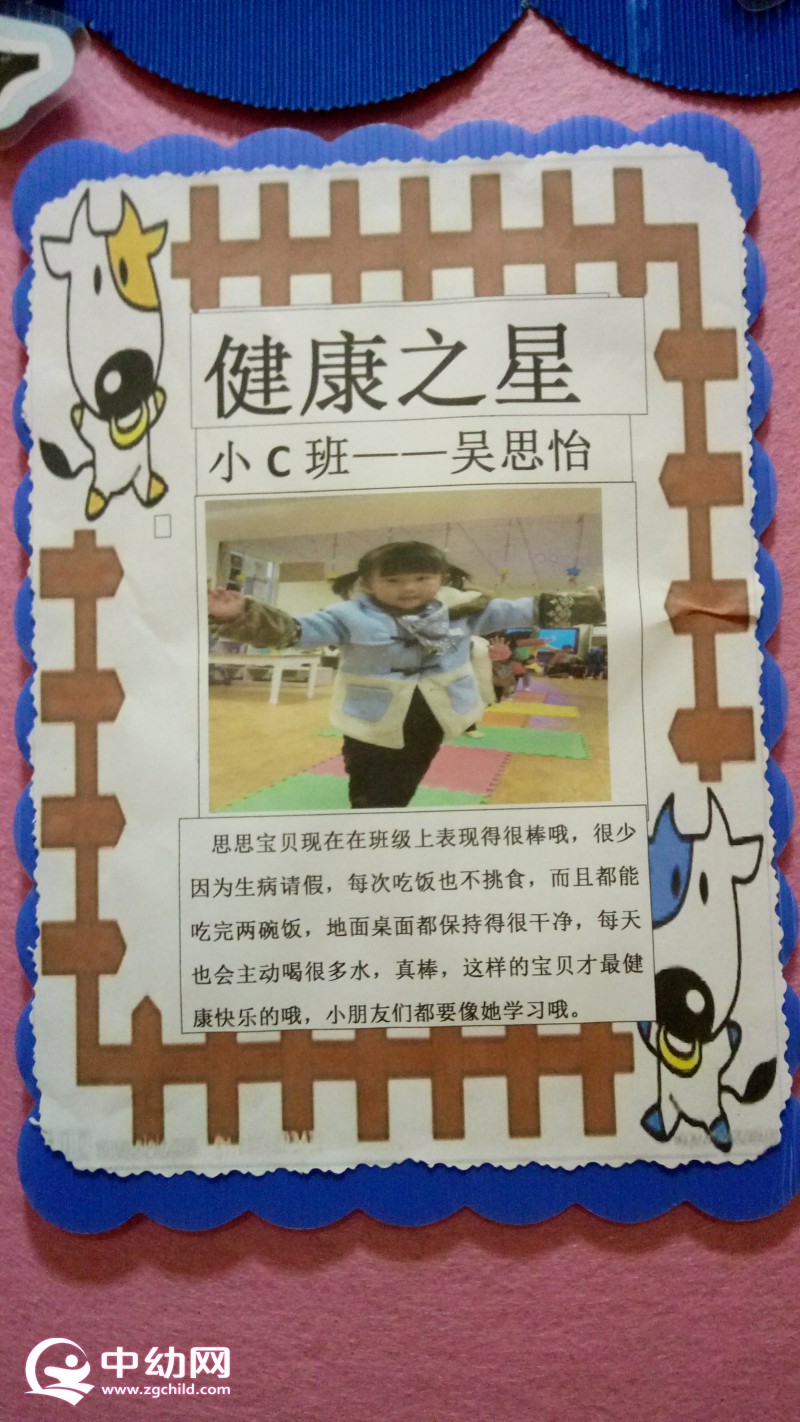 健康之星
小C班——吴思怡
思思宝贝现在在班级上表现得很棒哦，很少
因为生病请假，每次吃饭也不挑食，而且都能
吃完两碗饭，地面桌面都保持得很干净，每天
也会主动喝很多水，真棒，这样的宝贝才最健
康快乐的哦，小朋友们都要像她学习哦。
中幼网
www.zgchild.com